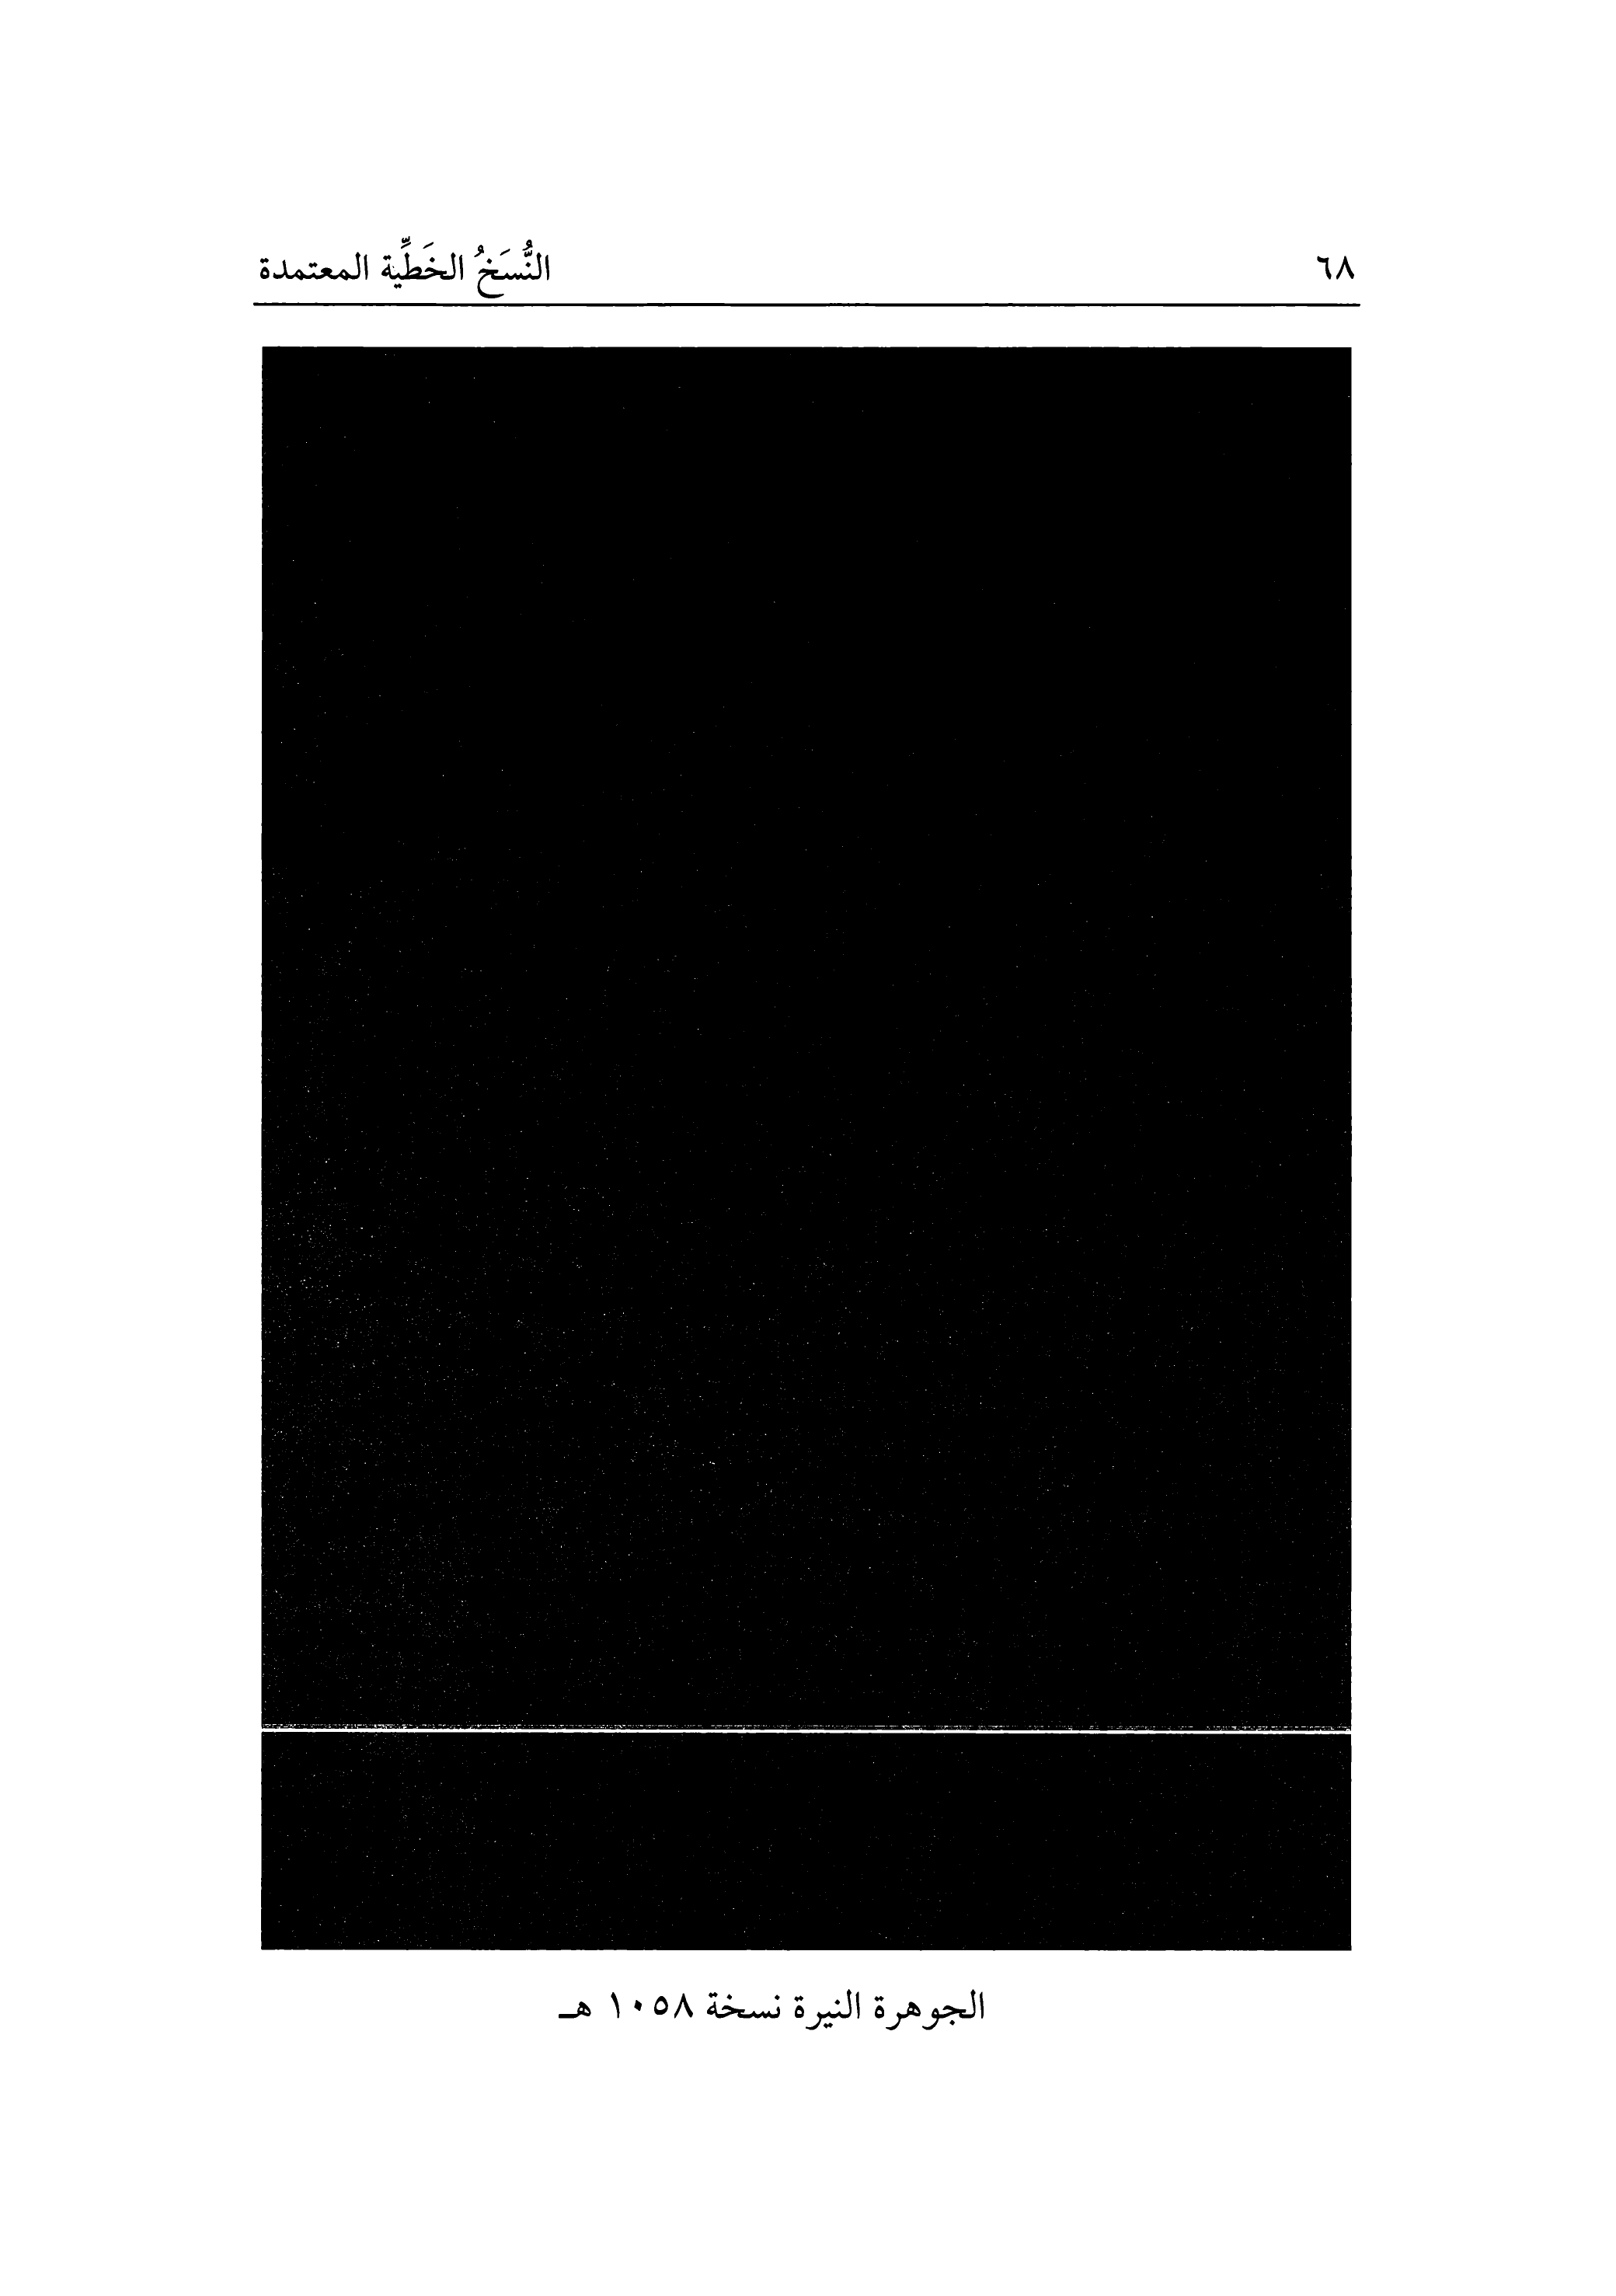 ٦٨ النُّسَخُ الخَطِّيَّة المعتمدة
الجوهرة النيرة نسخة ١٠٥٨ هـ